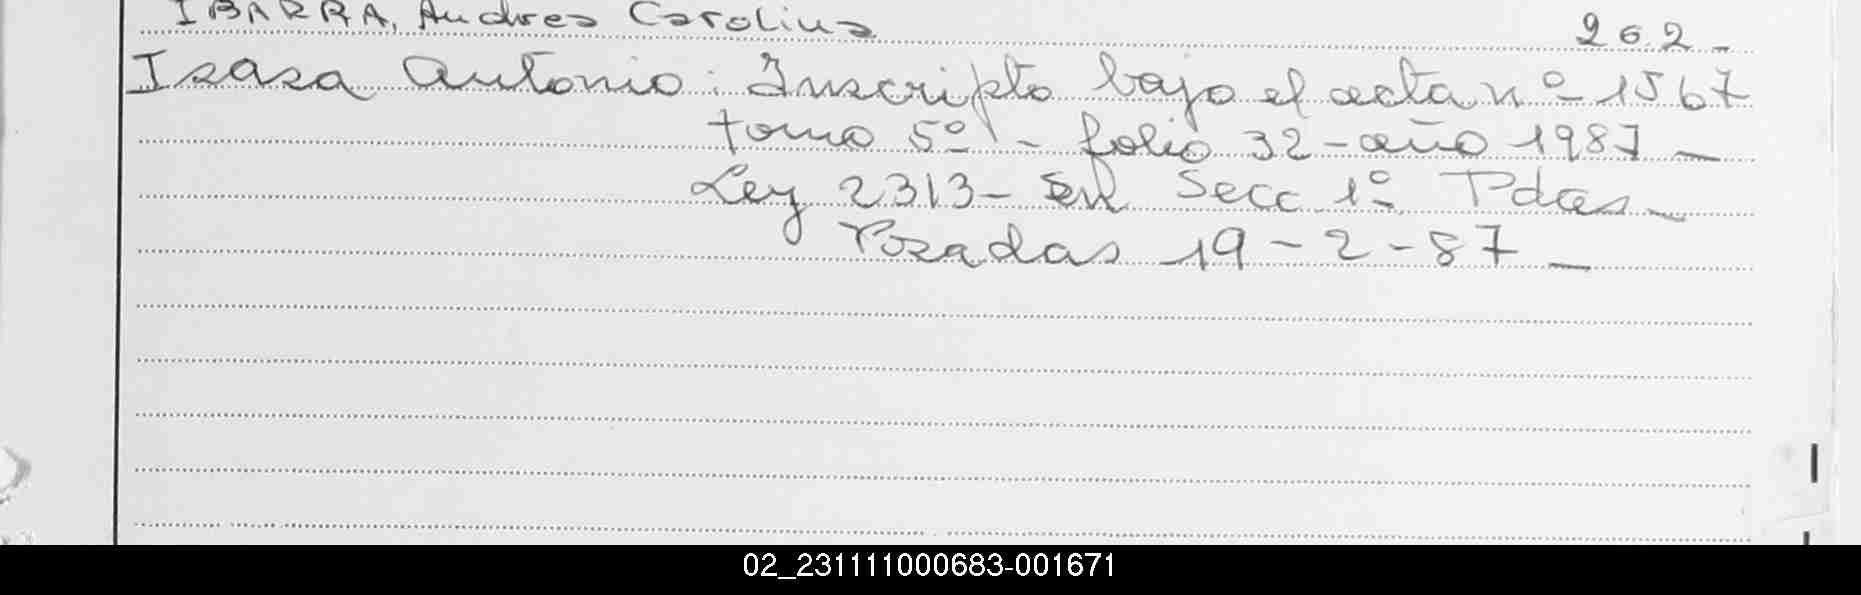 IBARRA, Andrea Carolina 262-
Isasa Antonio: Inscripto bajo el acta nº 1567
tomo 5º - folio 32 - año 1987 -
Ley 2313 - En Secc 1º Pdas -
Posadas 19 - 2 - 87 -
02_231111000683-001671